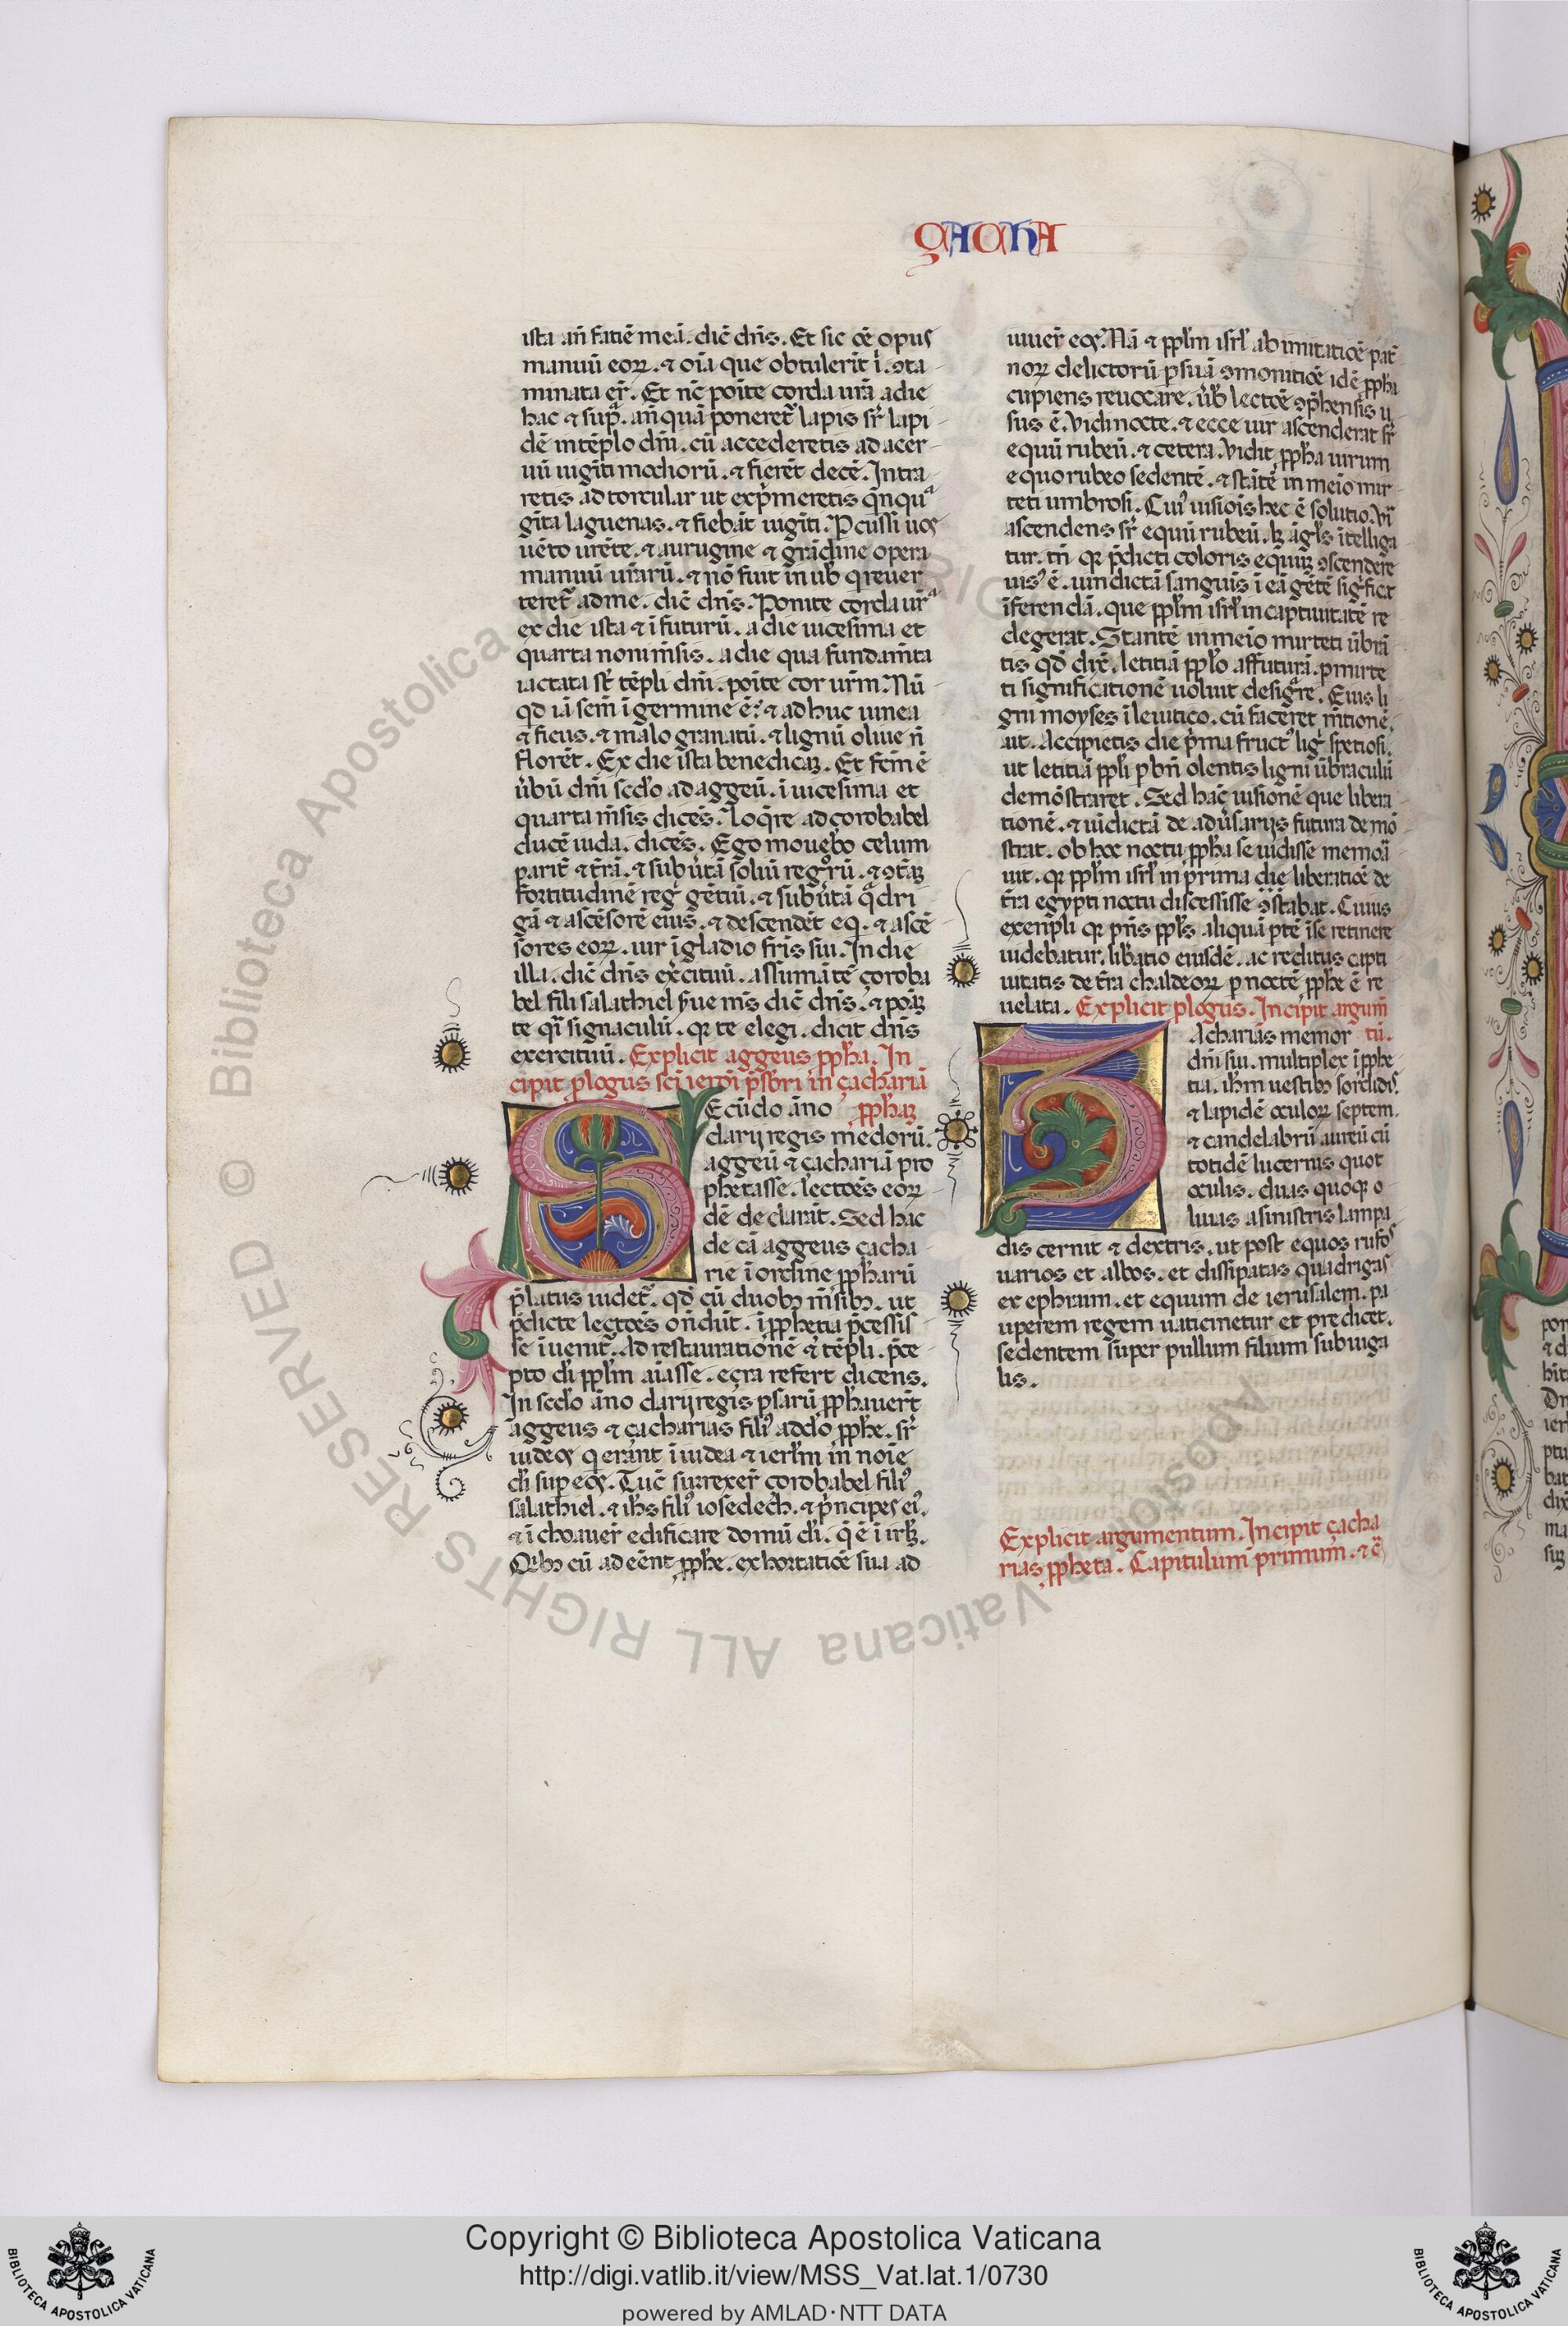 ÇACHA
ista an̄ fatiē meā. dic̄ dn̄s. Et sic oē opus
manuū eoꝝ. ⁊ oīa que obtulerīt i. ꝯta
minata er̄. Et nc̄ poīte corda urā a die
hac ⁊ supͣ. an̄ quā poneret̄ lapis sr̄ lapi
dē in tēplo dn̄i. cū accederetis ad acer
uū uigīti modiorū. ⁊ fierēt decē. Intra
retis ad torcular ut expͥmeretis qͥnquͣ
gīta laguenas. ⁊ fiebāt uigīti. Pcussi uos
uēto urēte. ⁊ aurugine ⁊ grādine opera
manuū urārū. ⁊ nō fuit in uob̄ qͥ reuer
teret̄ ad me. dic̄ dn̄s. Ponite corda urͣ
ex die ista ⁊ ī futurū. a die uicesima et
quarta noni m̄sis. a die qua fundam̄ta
iactata st̄ tēpli dn̄i. poīte cor urm̄. Nū
qd iā sem̄ ī germine ē? ⁊ ad huc uinea
⁊ ficus. ⁊ malogranatū. ⁊ lignū oliue n̄
florēt. Ex die ista benedicaꝫ. Et fcm̄ ē
ūbū dn̄i scd̄o ad aggeū. ī uicesima et
quarta m̄sis dicēs. Loqͥre ad çorobabel
ducē iuda. dicēs. Ego mouebo celum
parit̄ ⁊ t̄rā. ⁊ subūtā soliū regnͦrū. ⁊ ꝯt̄aꝫ
fortitudinē reḡ gētiū. ⁊ subūtā qͣdri
gā ⁊ ascēsorē eius. ⁊ descendēt eq̄. ⁊ ascē
sores eoꝝ. uir ī gladio fr̄is sui. In die
illa. dic̄ dn̄s exͤcituū. assumā te çoroba
bel fili salathiel s̄ue m̄s dic̄ dn̄s. ⁊ ponaꝫ
te qͣi signaculū. qꝛ te elegi. dicit dn̄s
exercituū. Explicit aggeus ꝓph̄a. In
cipit ꝓlogus sc̄i ieroī p̄sbr̄i in çachariā
Ecūdo āno ꝓph̄aꝫ
darij regis medorū.
aggeū ⁊ çachariā pro
phetasse. lectōes eoꝝ
dē declarāt. Sed hac
de cā aggeus çacha
rie ī ordine ꝓph̄arū
p̄latus uidet̄. qd̄ cū duobꝫ m̄sibꝫ. ut
p̄dicte lectōes on̄dūt. ī ꝓphetia p̄cessis
se īuenit̄. Ad restaurationē ⁊ tēpli. p̄ce
pto di ppl̄m aīasse. eçra refert dicens.
In scd̄o āno darij regis psarū ꝓph̄auer̄t
aggeus ⁊ çacharias filiꝰ addo ꝓph̄e. sr̄
iudeos qͥ erant ī iudea ⁊ ierl̄m in noīe
di sup eos. Tūc surrexer̄ çorobabel filiꝰ
salathiel. ⁊ ih̄s filiꝰ iosedech. ⁊ pͥncipes eiꝰ.
⁊ ī choauer̄ edificare domū di. q̄ ē ī irl̄ꝫ.
Qͥbꝫ cū ad eēnt ꝓph̄e. exhortatiōe sua ad
iuuer̄ eos. Nā ⁊ ppl̄m isrl̄ ab imitatiōe pat̄
noꝝ delictorū p suā ꝯmonitiōē idē ꝓph̄a
cupiens reuocare. ūb̄ lectōe ꝯph̄ensis u
sus ē. Vidi nocte. ⁊ ecce uir ascenderat sr̄
equū rubeū. ⁊ cetera. Vidit ꝓph̄a uirum
equo rubeo sedentē. ⁊ stātē in meīo mir
teti umbrosi. Cuiꝰ uisiōis hec ē solutio. Vir̄
ascendens sr̄ equū rubeū. lꝫ āgl̄s ītelliga
tur. tn̄ qꝛ p̄dicti coloris equuꝫ ꝯscendere
uisꝰ ē. uindictā sanguīs ī eā gētē sigͥficat
īferendā. que ppl̄m isrl̄ in captiuitatē re
degerat. Stantē in meīo mirteti ūbrā
tis qd̄ dix̄. letitiā ppl̄o affuturā. p mirte
ti significationē uoluit desigͣre. Eius li
gni moyses ī leuitico. cū faceret m̄tionē.
ait. Accipietis die pͥma fructꝰ ligͥ spetiosi.
ut letitiā ppl̄i p bn̄ olentis ligni ūbraculū
demōstraret. Sed hāc uisionē que libera
tionē. ⁊ uīdictā de adūsarijs futura demō
strat. ob hoc noctu ꝓph̄a se uidisse memoͣ
uit. qꝛ ppl̄m isrl̄ in prima die liberatiōe de
t̄ra egypti noctu discessisse ꝯstabat. Cuius
exempli qꝛ pn̄s ppl̄s aliquā ptē ī se retinere
uidebatur. lib̄atio eiusdē. ac reditus capti
uitatis de t̄ra chaldeoꝝ p noctē ꝓph̄e ē re
uelata. Explicit ꝓlogus. Incipit argum̄
Acharias memor tū.
dn̄i sui. multiplex ī ꝓphe
tia. ih̄m uestibꝫ sordidꝭ.
⁊ lapidē oculoꝝ septem.
⁊ candelabrū aureū cū
totidē lucernis quot
oculis. duas quoqꝫ o
liuas a sinistris lampa
dis cernit ⁊ dextris. ut post equos rufoˢ
uarios et albos. et dissipatas quadrigas
ex ephraim. et equum de ierusalem. pa
uperem regem uaticinetur et predicet.
sedentem super pullum filium subiuga
lis.
Explicit argumentum. Incipit çacha
rias ꝓpheta. Capitulum primum. ⁊ c̄
Copyright © Biblioteca Apostolica Vaticana
http://digi.vatlib.it/view/MSS_Vat.lat.1/0730
powered by AMLAD·NTT DATA
BIBLIOTECA APOSTOLICA VATICANA
BIBLIOTECA APOSTOLICA VATICANA
© Biblioteca Apostolica Vaticana ALL RIGHTS RESERVED